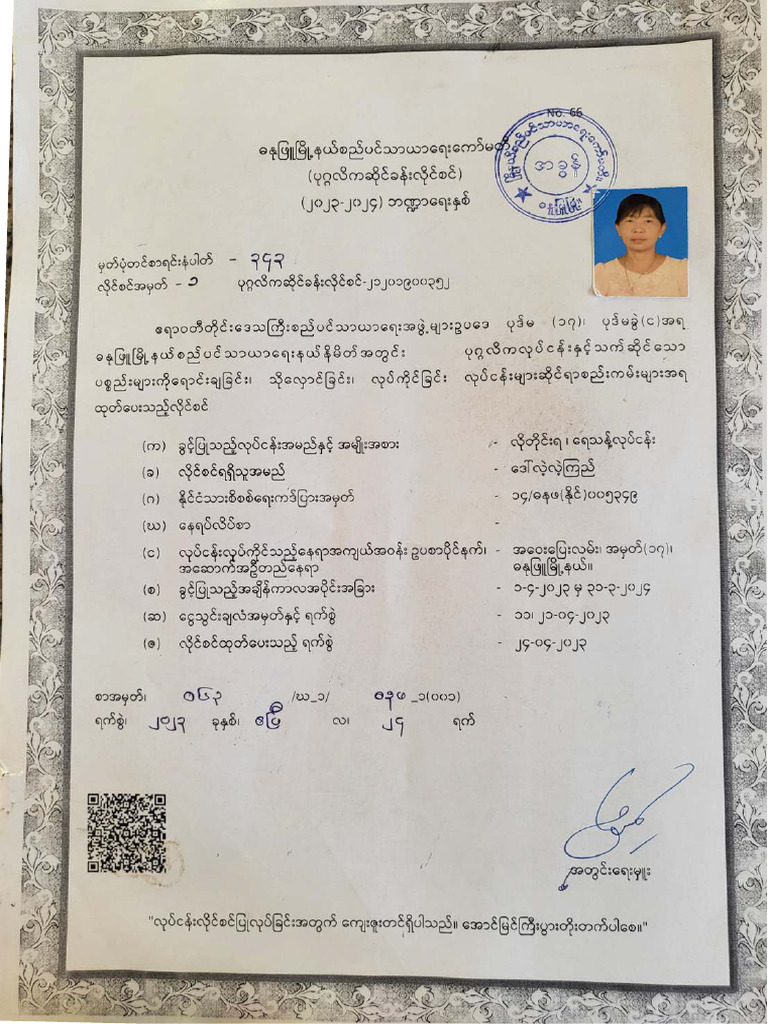 No. 66
ဓနုဖြူမြို့နယ်စည်ပင်သာယာရေးကော်မတီ
(ပုဂ္ဂလိကဆိုင်ခန်းလိုင်စင်)
(၂၀၂၃-၂၀၂၄) ဘဏ္ဍာရေးနှစ်
မှတ်ပုံတင်စာရင်းနံပါတ် - ၃၄၃
လိုင်စင်အမှတ် - ၁ ပုဂ္ဂလိကဆိုင်ခန်းလိုင်စင်-၂၁၂၀၁၉၀၀၃၅၂
ဧရာဝတီတိုင်းဒေသကြီးစည်ပင်သာယာရေးအဖွဲ့များဥပဒေ ပုဒ်မ (၁၇)၊ ပုဒ်မခွဲ(င)အရ
ဓနုဖြူမြို့နယ်စည်ပင်သာယာရေးနယ်နိမိတ်အတွင်း ပုဂ္ဂလိကလုပ်ငန်းနှင့်သက်ဆိုင်သော
ပစ္စည်းများကိုရောင်းချခြင်း၊ သိုလှောင်ခြင်း၊ လုပ်ကိုင်ခြင်း လုပ်ငန်းများဆိုင်ရာစည်းကမ်းများအရ
ထုတ်ပေးသည့်လိုင်စင်
(က) ခွင့်ပြုသည့်လုပ်ငန်းအမည်နှင့် အမျိုးအစား - လိုတိုင်းရ ၊ ရေသန့်လုပ်ငန်း
(ခ) လိုင်စင်ရရှိသူအမည် - ဒေါ်လဲ့လဲ့ကြည်
(ဂ) နိုင်ငံသားစိစစ်ရေးကဒ်ပြားအမှတ် - ၁၄/ဓနဖ(နိုင်)၀၀၅၃၄၉
(ဃ) နေရပ်လိပ်စာ -
(င) လုပ်ငန်းလုပ်ကိုင်သည့်နေရာအကျယ်အဝန်း ဥပစာပိုင်နက်၊ - အဝေးပြေးလမ်း၊ အမှတ်(၁၇)၊
အဆောက်အဦတည်နေရာ ဓနုဖြူမြို့နယ်။
(စ) ခွင့်ပြုသည့်အချိန်ကာလအပိုင်းအခြား - ၁-၄-၂၀၂၃ မှ ၃၁-၃-၂၀၂၄
(ဆ) ငွေသွင်းချလံအမှတ်နှင့် ရက်စွဲ - ၁၁၊ ၂၁-၀၄-၂၀၂၃
(ဇ) လိုင်စင်ထုတ်ပေးသည့် ရက်စွဲ - ၂၄-၀၄-၂၀၂၃
စာအမှတ်၊ ၁၆၃ /ဃ_၁/ ဓနဖ _၁(၀၀၁)
ရက်စွဲ၊ ၂၀၂၃ ခုနှစ်၊ ဧပြီ လ၊ ၂၄ ရက်
အတွင်းရေးမှူး
"လုပ်ငန်းလိုင်စင်ပြုလုပ်ခြင်းအတွက် ကျေးဇူးတင်ရှိပါသည်။ အောင်မြင်ကြီးပွားတိုးတက်ပါစေ။"